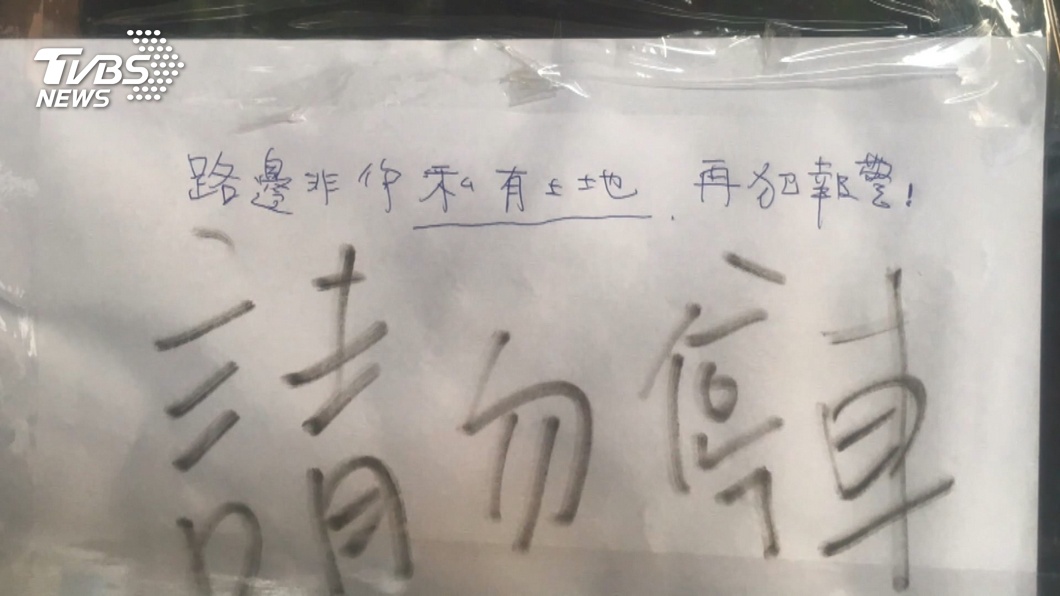 TVBS
NEWS
路邊非你私有土地.再犯報警!
請勿停車